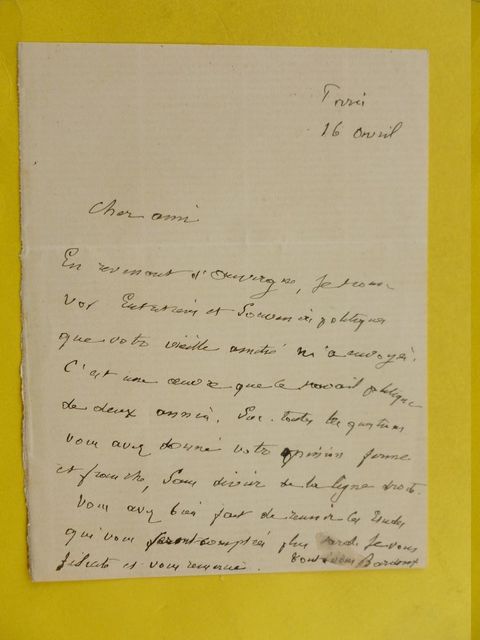 Paris
16 avril
Cher ami
En revenant d'Auvergne, Je trouve
vos Entretiens et Souvenirs politiques
que votre vieille amitié m'a envoyés.
C'est une œuvre que le travail politique
de deux années. Sur toutes les questions
vous avez donné votre opinion ferme
et franche, sans dévier de la ligne droite.
Vous avez bien fait de réunir les Etudes
qui vous seront comptées plus tard. Je vous
félicite et vous remercie. Tout à vous Bardoux